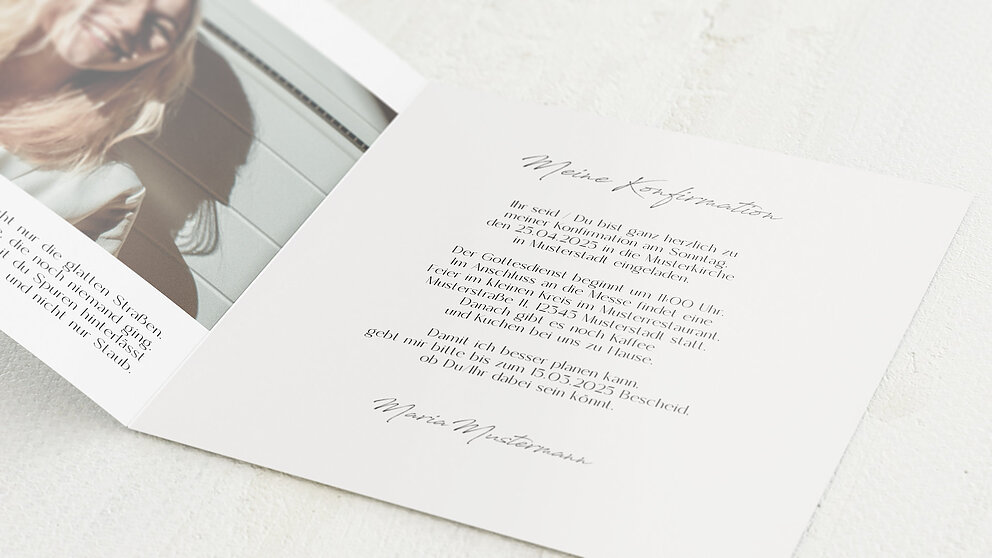 ht nur die glatten Straßen.
, die noch niemand ging,
it du Spuren hinterlässt
und nicht nur Staub.
Meine Konfirmation
Ihr seid / Du bist ganz herzlich zu
meiner Konfirmation am Sonntag,
den 25.04.2025 in die Musterkirche
in Musterstadt eingeladen.
Der Gottesdienst beginnt um 11:00 Uhr.
Im Anschluss an die Messe findet eine
Feier im kleinen Kreis im Musterrestaurant,
Musterstraße 11, 12345 Musterstadt statt.
Danach gibt es noch Kaffee
und Kuchen bei uns zu Hause.
Damit ich besser planen kann,
gebt mir bitte bis zum 15.03.2025 Bescheid,
ob Du/Ihr dabei sein könnt.
Maria Mustermann